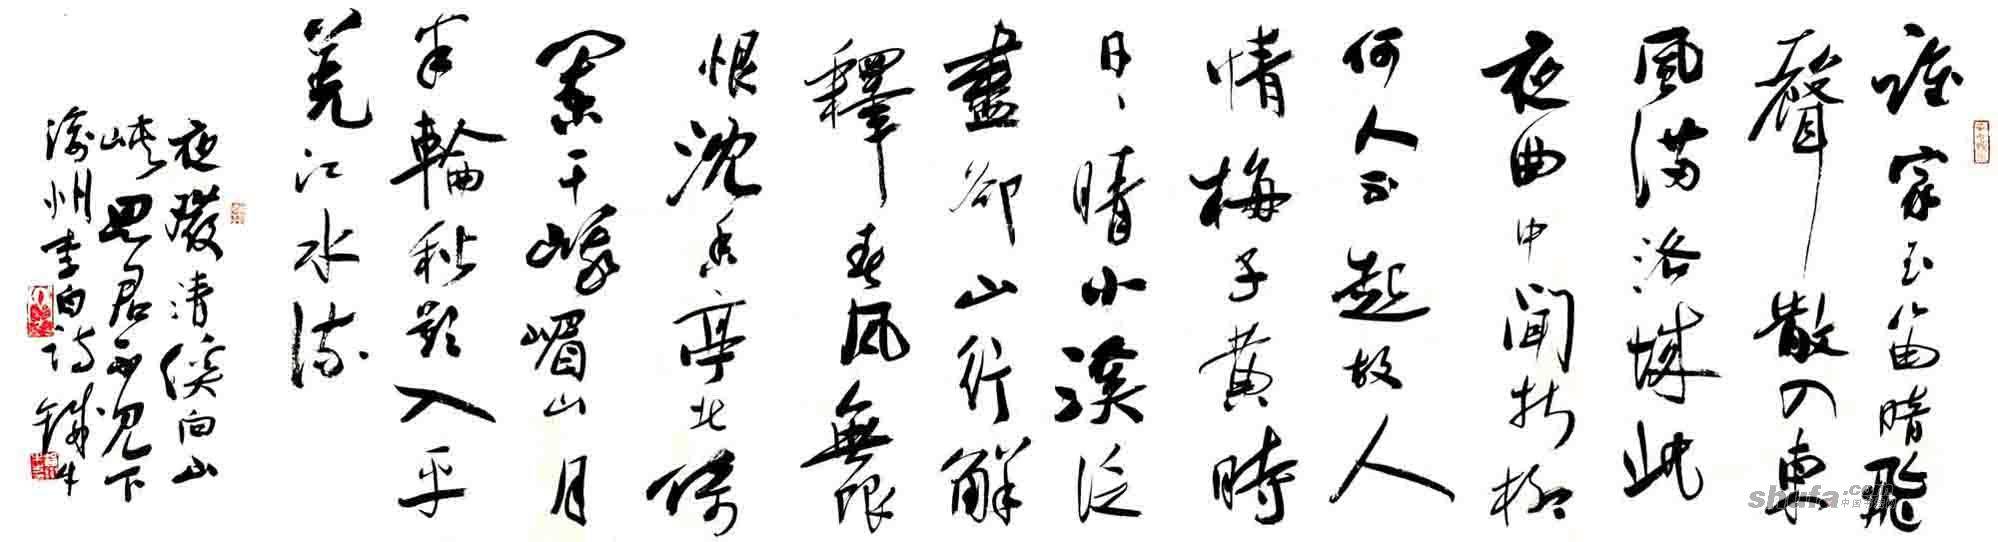 誰家玉笛暗飛
聲散入東
風滿洛城此
夜曲中聞折柳
何人不起故人
情梅子黃時
日〻晴小溪泛
盡卻山行解
釋春風無限
恨沈香亭北倚
闌干峨嵋山月
半輪秋影入平
羌江水流
夜發清溪向山
峽思君不見下
渝州李白詩鐵牛
shufa.com